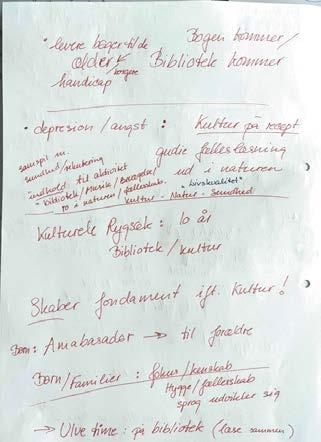 • levere bøger til de Bogen kommer/
ældre / borgere Bibliotek kommer
handicap
• depresion / angst : Kultur på recept
samspil m. guidie fælleslæsning
sundhed / rekrutering ud i naturen
indhold til aktivitet "livskvalitet"
- bibliotek / Musik / Bevægelse /
ro i naturen / fællesskab. Kultur - Natur - Sundhed
Kulturel Rygsæk : 10 år
Bibliotek / kultur
Skaber fondament ift. Kultur !
Børn : Amabasadør → til forældre
Børn / Familier : fokus / kendskab
Hygge / fællesskab
sprog udvikler sig
→ Ulve time : på bibliotek (læse sammen)